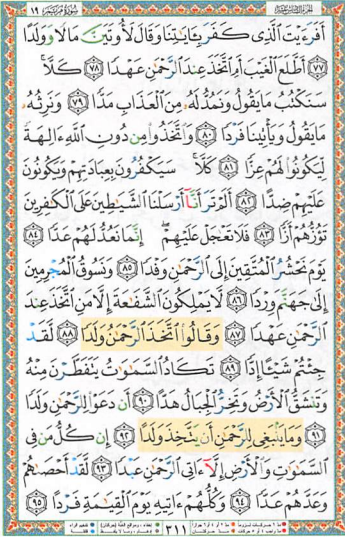 ١٩ سورة مريم
أَفَرَءَيْتَ ٱلَّذِى كَفَرَ بِـَٔايَـٰتِنَا وَقَالَ لَأُوتَيَنَّ مَالًا وَوَلَدًا
٧٧ أَطَّلَعَ ٱلْغَيْبَ أَمِ ٱتَّخَذَ عِندَ ٱلرَّحْمَـٰنِ عَهْدًا ٧٨ كَلَّا
سَنَكْتُبُ مَا يَقُولُ وَنَمُدُّ لَهُۥ مِنَ ٱلْعَذَابِ مَدًّا ٧٩ وَنَرِثُهُۥ
مَا يَقُولُ وَيَأْتِينَا فَرْدًا ٨٠ وَٱتَّخَذُوا۟ مِن دُونِ ٱللَّهِ ءَالِهَةً
لِّيَكُونُوا۟ لَهُمْ عِزًّا ٨١ كَلَّا سَيَكْفُرُونَ بِعِبَادَتِهِمْ وَيَكُونُونَ
عَلَيْهِمْ ضِدًّا ٨٢ أَلَمْ تَرَ أَنَّآ أَرْسَلْنَا ٱلشَّيَـٰطِينَ عَلَى ٱلْكَـٰفِرِينَ
تَؤُزُّهُمْ أَزًّا ٨٣ فَلَا تَعْجَلْ عَلَيْهِمْ إِنَّمَا نَعُدُّ لَهُمْ عَدًّا ٨٤
يَوْمَ نَحْشُرُ ٱلْمُتَّقِينَ إِلَى ٱلرَّحْمَـٰنِ وَفْدًا ٨٥ وَنَسُوقُ ٱلْمُجْرِمِينَ
إِلَىٰ جَهَنَّمَ وِرْدًا ٨٦ لَّا يَمْلِكُونَ ٱلشَّفَـٰعَةَ إِلَّا مَنِ ٱتَّخَذَ عِندَ
ٱلرَّحْمَـٰنِ عَهْدًا ٨٧ وَقَالُوا۟ ٱتَّخَذَ ٱلرَّحْمَـٰنُ وَلَدًا ٨٨ لَّقَدْ
جِئْتُمْ شَيْـًٔا إِدًّا ٨٩ تَكَادُ ٱلسَّمَـٰوَٰتُ يَتَفَطَّرْنَ مِنْهُ
وَتَنشَقُّ ٱلْأَرْضُ وَتَخِرُّ ٱلْجِبَالُ هَدًّا ٩٠ أَن دَعَوْا۟ لِلرَّحْمَـٰنِ وَلَدًا
٩١ وَمَا يَنۢبَغِى لِلرَّحْمَـٰنِ أَن يَتَّخِذَ وَلَدًا ٩٢ إِن كُلُّ مَن فِى
ٱلسَّمَـٰوَٰتِ وَٱلْأَرْضِ إِلَّآ ءَاتِى ٱلرَّحْمَـٰنِ عَبْدًا ٩٣ لَّقَدْ أَحْصَىٰهُمْ
وَعَدَّهُمْ عَدًّا ٩٤ وَكُلُّهُمْ ءَاتِيهِ يَوْمَ ٱلْقِيَـٰمَةِ فَرْدًا ٩٥
٣١١